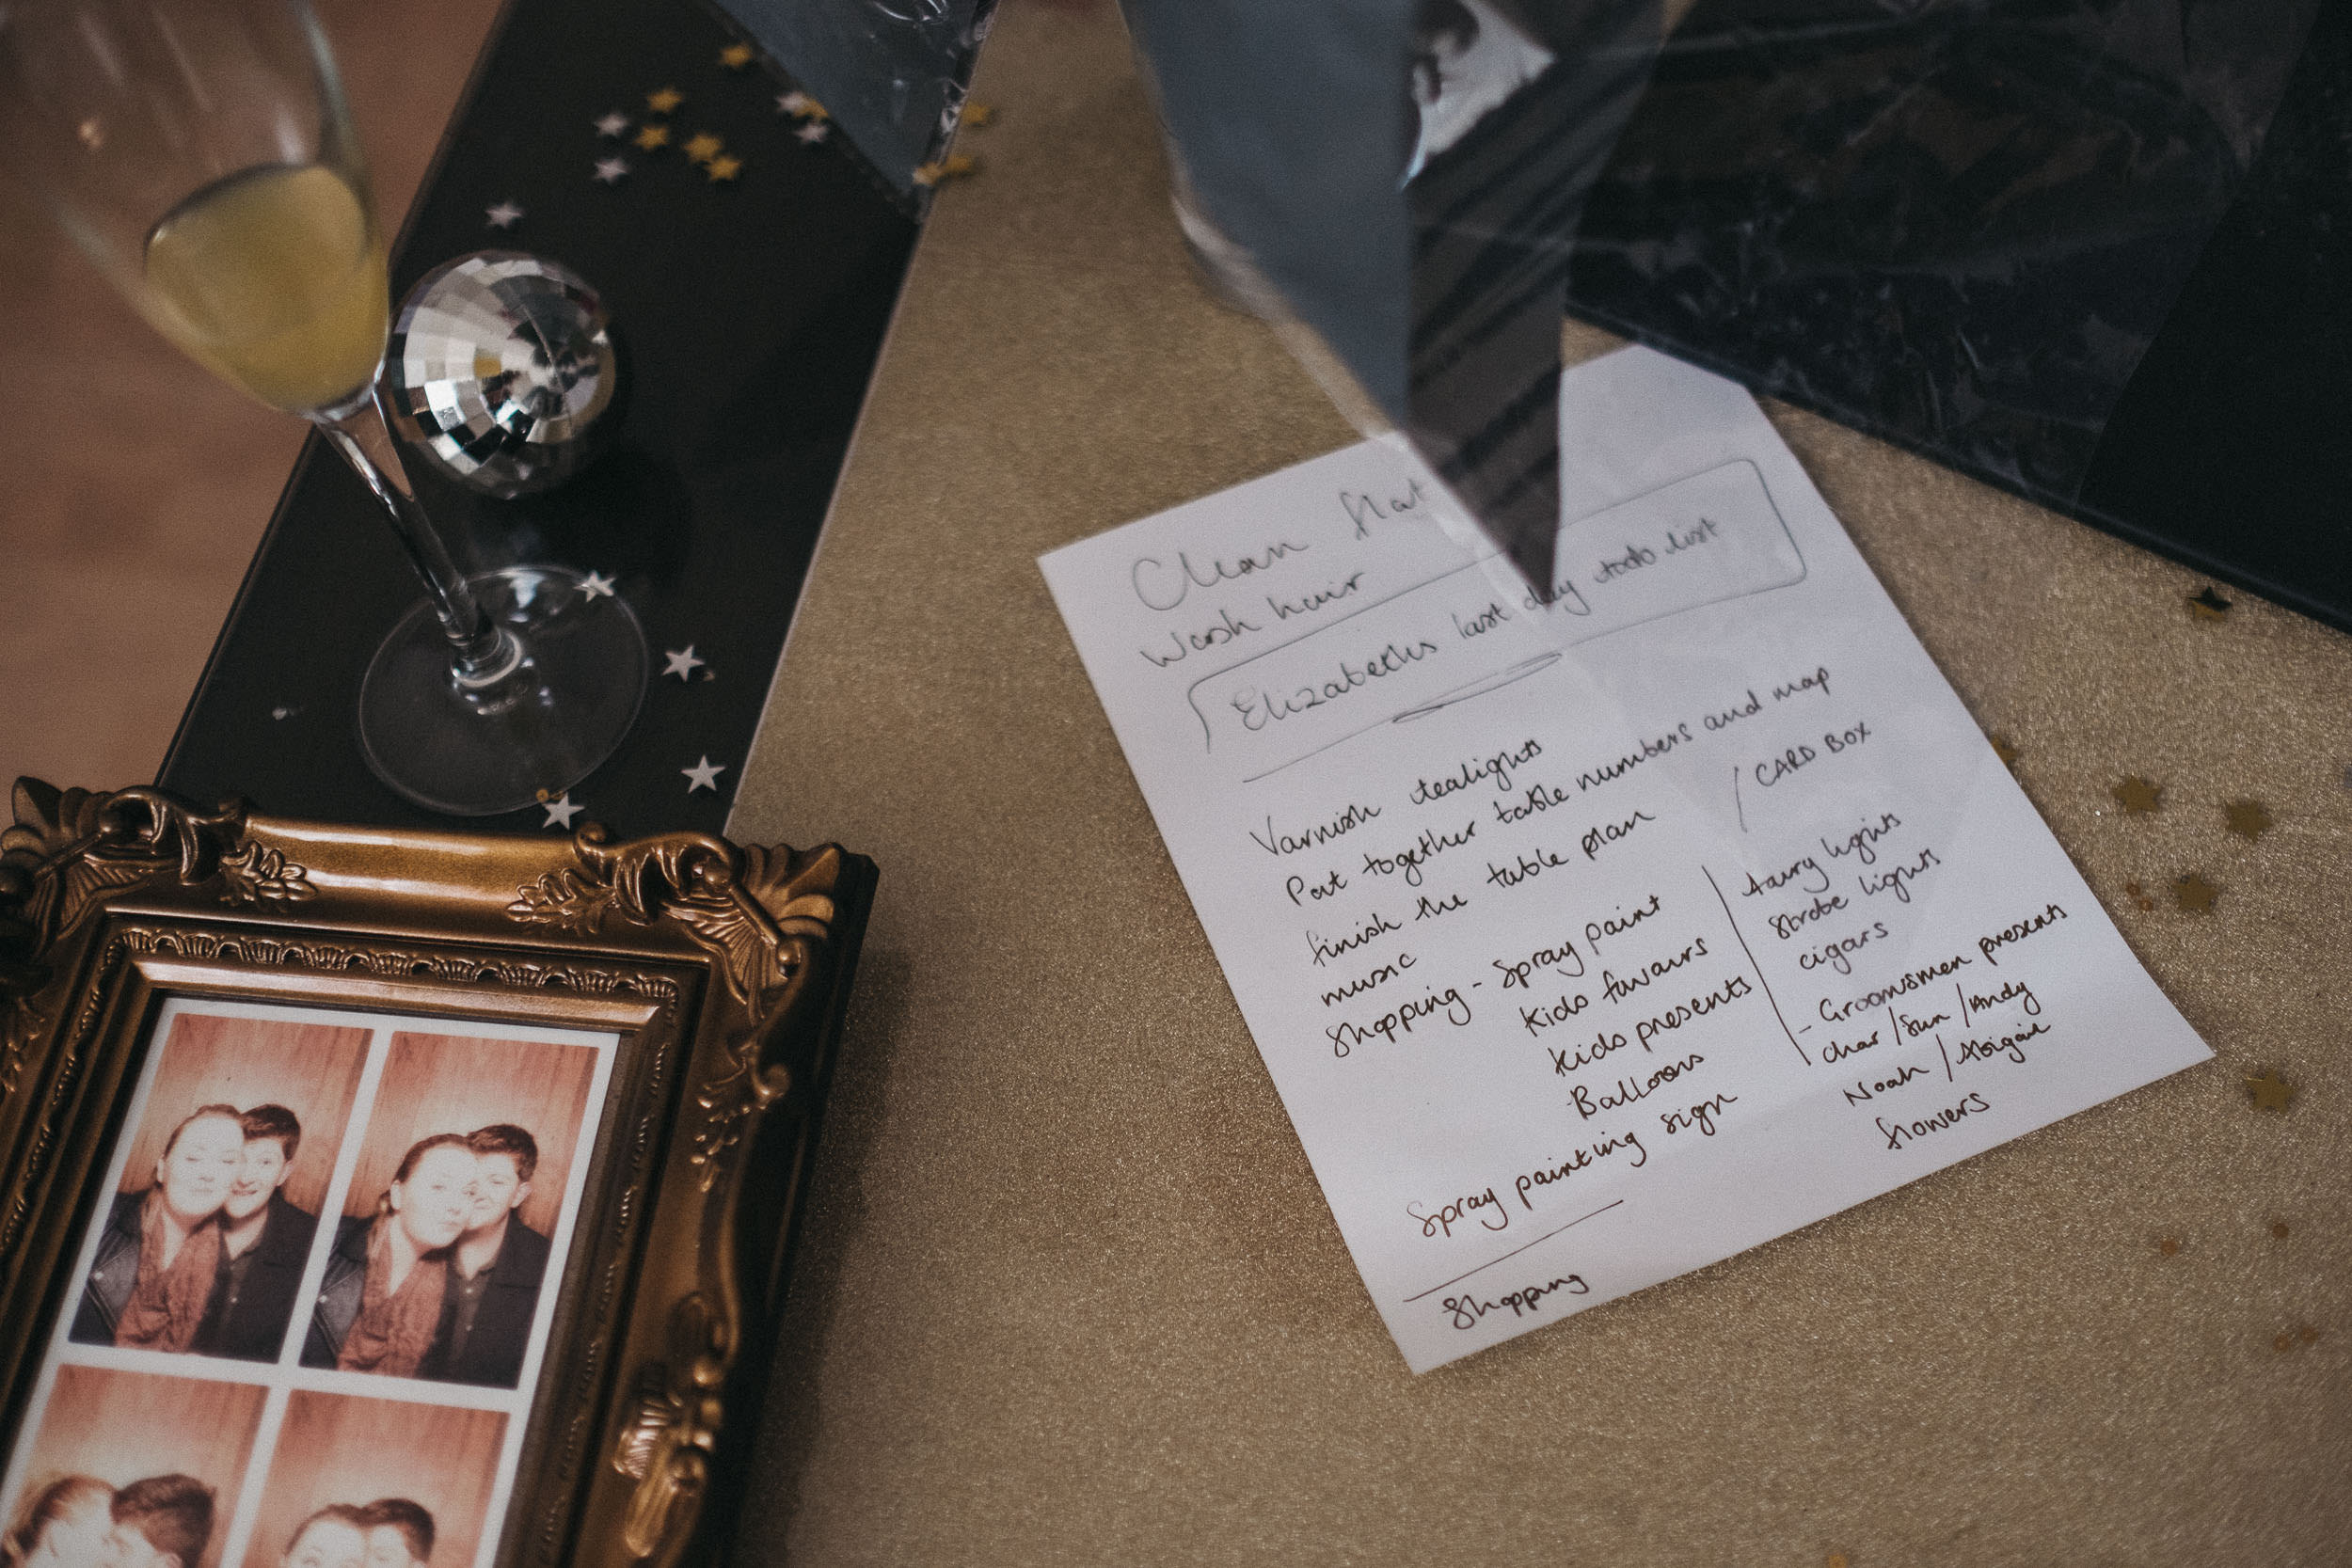 Clean flat
Wash hair
Elizabeths last day todo list
Varnish tealights
Put together table numbers and map
finish the table plan / CARD BOX
music
Shopping - Spray paint
Kids favours
Kids presents
Balloons
Spray painting sign
fairy lights
Strobe lights
cigars
- Groomsmen presents
Char / Sun / Andy
Noah / Abigail
flowers
Shopping